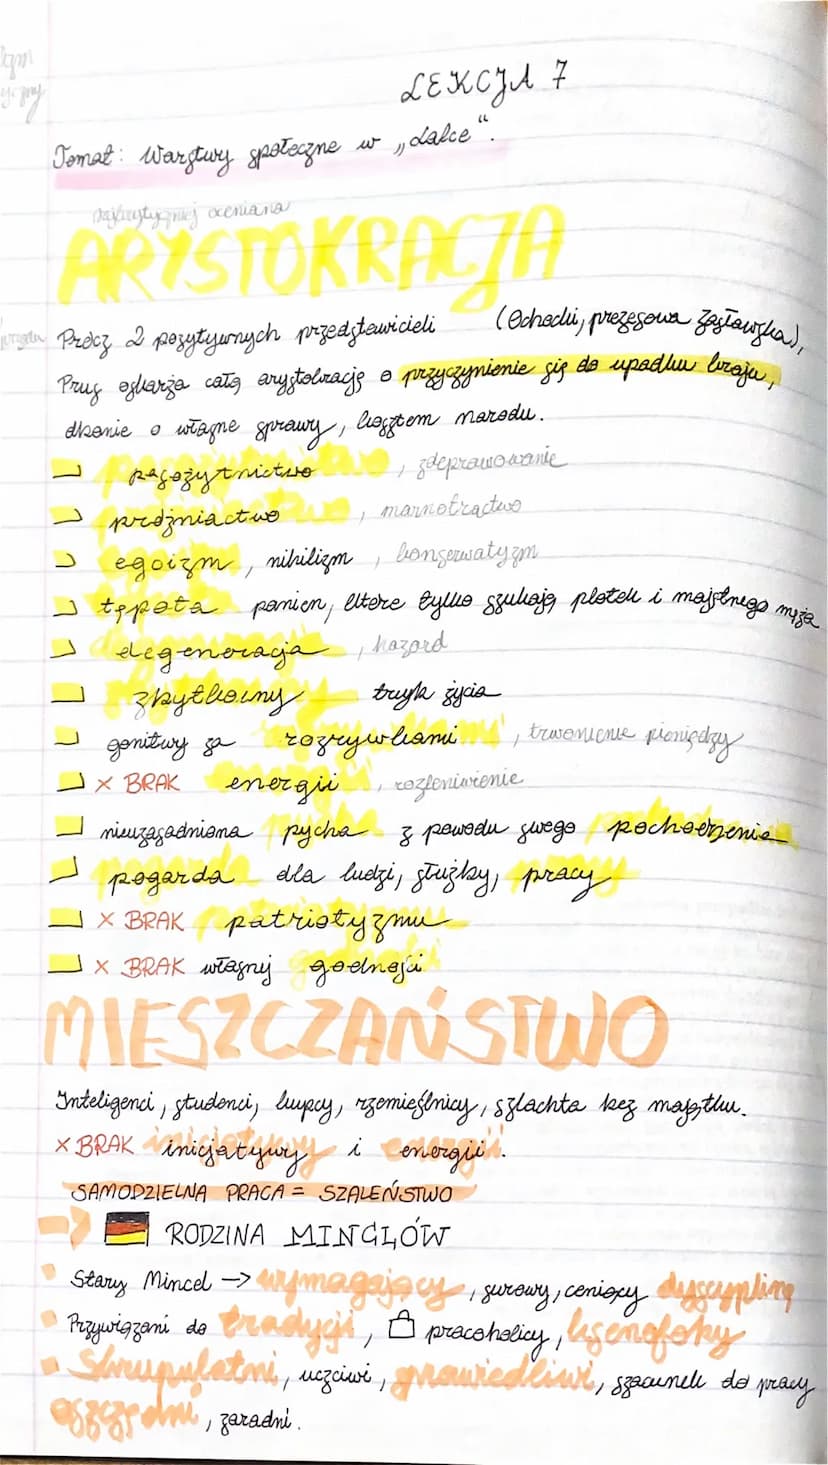 LEKCJA 7
Temat: Warstwy społeczne w „Lalce”.
najkrytyczniej oceniana
ARYSTOKRACJA
Prócz 2 pozytywnych przedstawicieli (Ochocki, prezesowa Zasławska),
Prus oskarża całą arystokrację o przyczynienie się do upadku kraju,
dbanie o własne sprawy, kosztem narodu.
pasożytnictwo, zdeprawowanie
próżniactwo, marnotractwo
egoizm, nihilizm, konserwatyzm
tępota panien, które tylko szukają plotek i majętnego męża
degeneracja, hazard
zbytkowny tryb życia
gonitwy za rozrywkami, trwonienie pieniędzy
× BRAK energii, rozleniwienie
nieuzasadniona pycha z powodu swego pochodzenia
pogarda dla ludzi, służby, pracy
× BRAK patriotyzmu
× BRAK własnej godności
MIESZCZAŃSTWO
Inteligenci, studenci, kupcy, rzemieślnicy, szlachta bez majątku.
× BRAK inicjatywy i energii.
SAMODZIELNA PRACA = SZALEŃSTWO
→ RODZINA MINCLÓW
Stary Mincel → wymagający, surowy, ceniący dyscyplinę
Przywiązani do tradycji, pracoholicy, ksenofoby
Skrupulatni, uczciwi, sprawiedliwi, szacunek do pracy
oszczędni, zaradni.